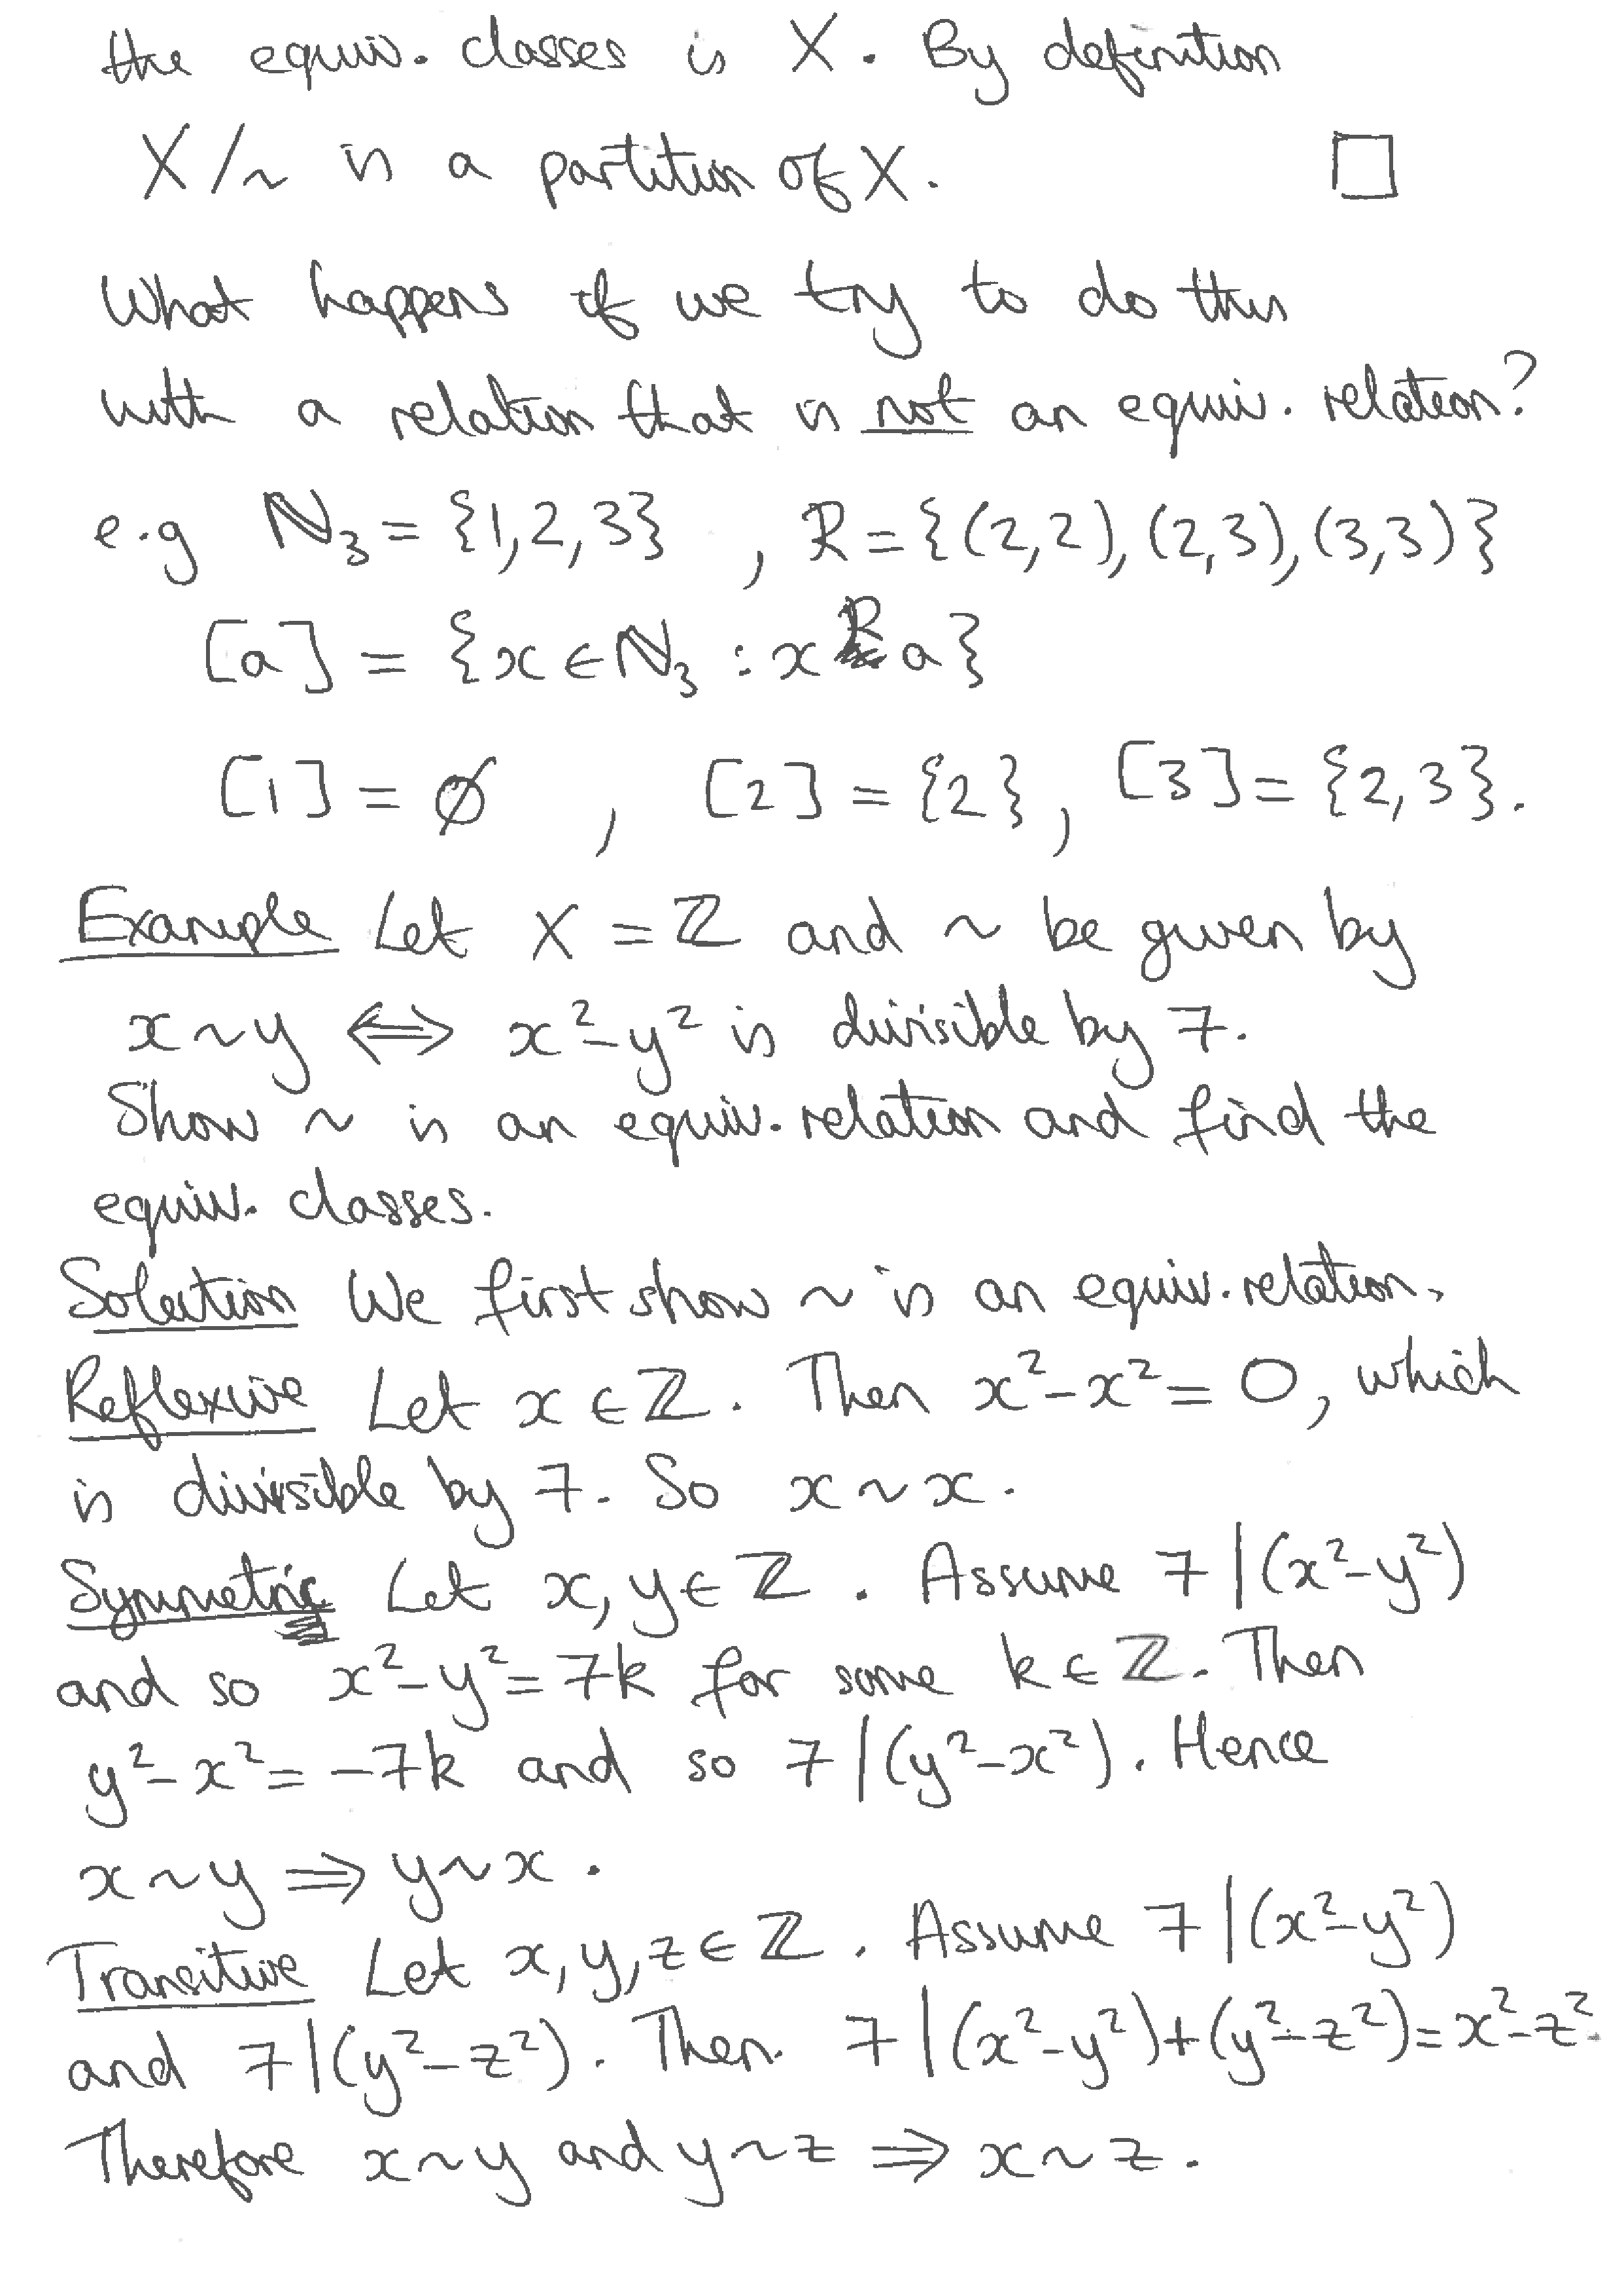 the equiv. classes is X. By definition
X/~ is a partition of X. □
What happens if we try to do this
with a relation that is not an equiv. relation?
e.g ℕ₃ = {1,2,3} , R = {(2,2),(2,3),(3,3)}
[a] = {x ∈ ℕ₃ : x R a}
[1] = ∅ , [2] = {2}, [3] = {2,3}.
Example Let X = ℤ and ~ be given by
x ~ y ⟺ x² - y² is divisible by 7.
Show ~ is an equiv. relation and find the
equiv. classes.
Solution We first show ~ is an equiv. relation.
Reflexive Let x ∈ ℤ. Then x² - x² = 0, which
is divisible by 7. So x ~ x.
Symmetric Let x, y ∈ ℤ. Assume 7 | (x² - y²)
and so x² - y² = 7k for some k ∈ ℤ. Then
y² - x² = -7k and so 7 | (y² - x²). Hence
x ~ y ⟹ y ~ x.
Transitive Let x, y, z ∈ ℤ. Assume 7 | (x² - y²)
and 7 | (y² - z²). Then 7 | (x² - y²) + (y² - z²) = x² - z².
Therefore x ~ y and y ~ z ⟹ x ~ z.